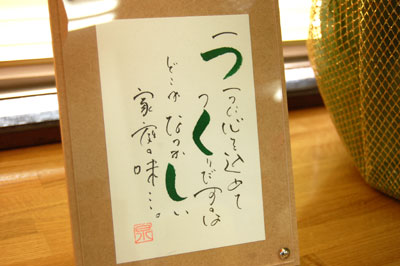 一つ一つに心を込めて
つくりだすのは
どこかなつかしい
家庭の味…。